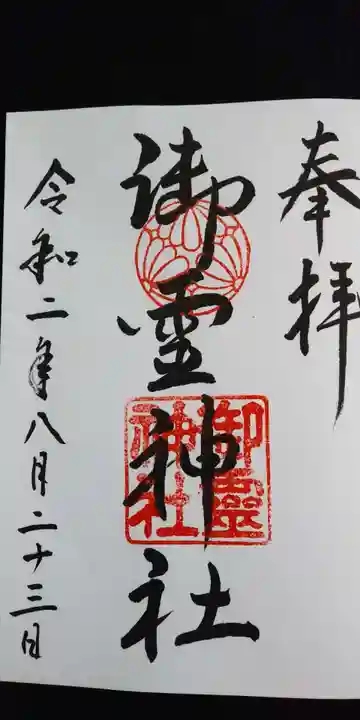 奉拝
御霊神社
御霊神社
令和二年八月二十三日